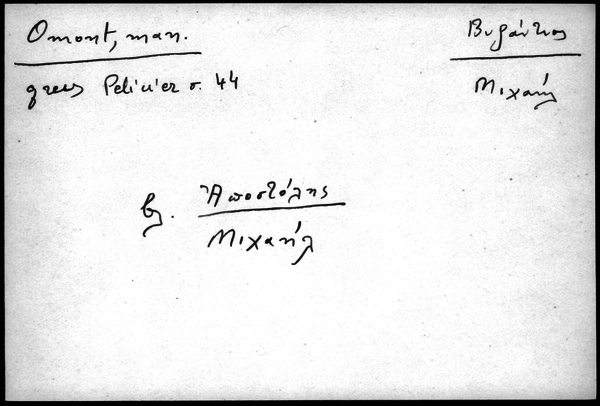 Omont, man.
grecs Pelicier σ. 44
Βυζάντιος
Μιχαήλ
βλ. Ἀποστόλης
Μιχαήλ